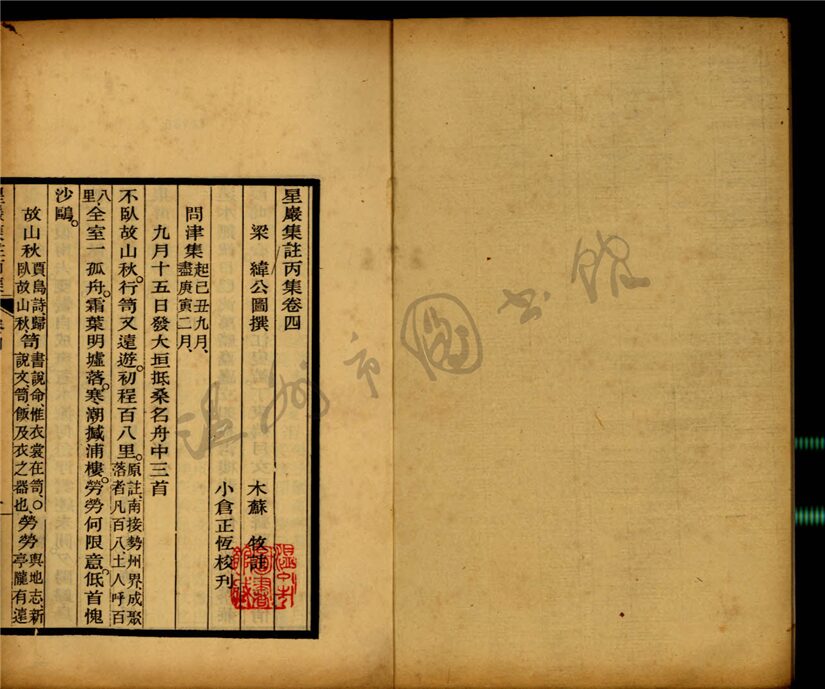 星巖集註丙集卷四
梁 緯公圖撰
木蘇 牧註
小倉正恆校刊
問津集 起己丑九月、盡庚寅二月、
九月十五日發大垣抵桑名舟中三首
不臥故山秋。行笥又遠遊。初程百八里。原註、南接勢州界、成聚落者凡百八、土人呼百
八里、全室一孤舟。霜葉明墟落。寒潮撼浦樓。勞勞何限意。低首愧
沙鷗。
故山秋 賈島詩、歸臥故山秋、 笥 書說命、惟衣裳在笥、說文、笥、飯及衣之器也、○勞勞 輿地志、新亭隴有遠
温州市圖書館